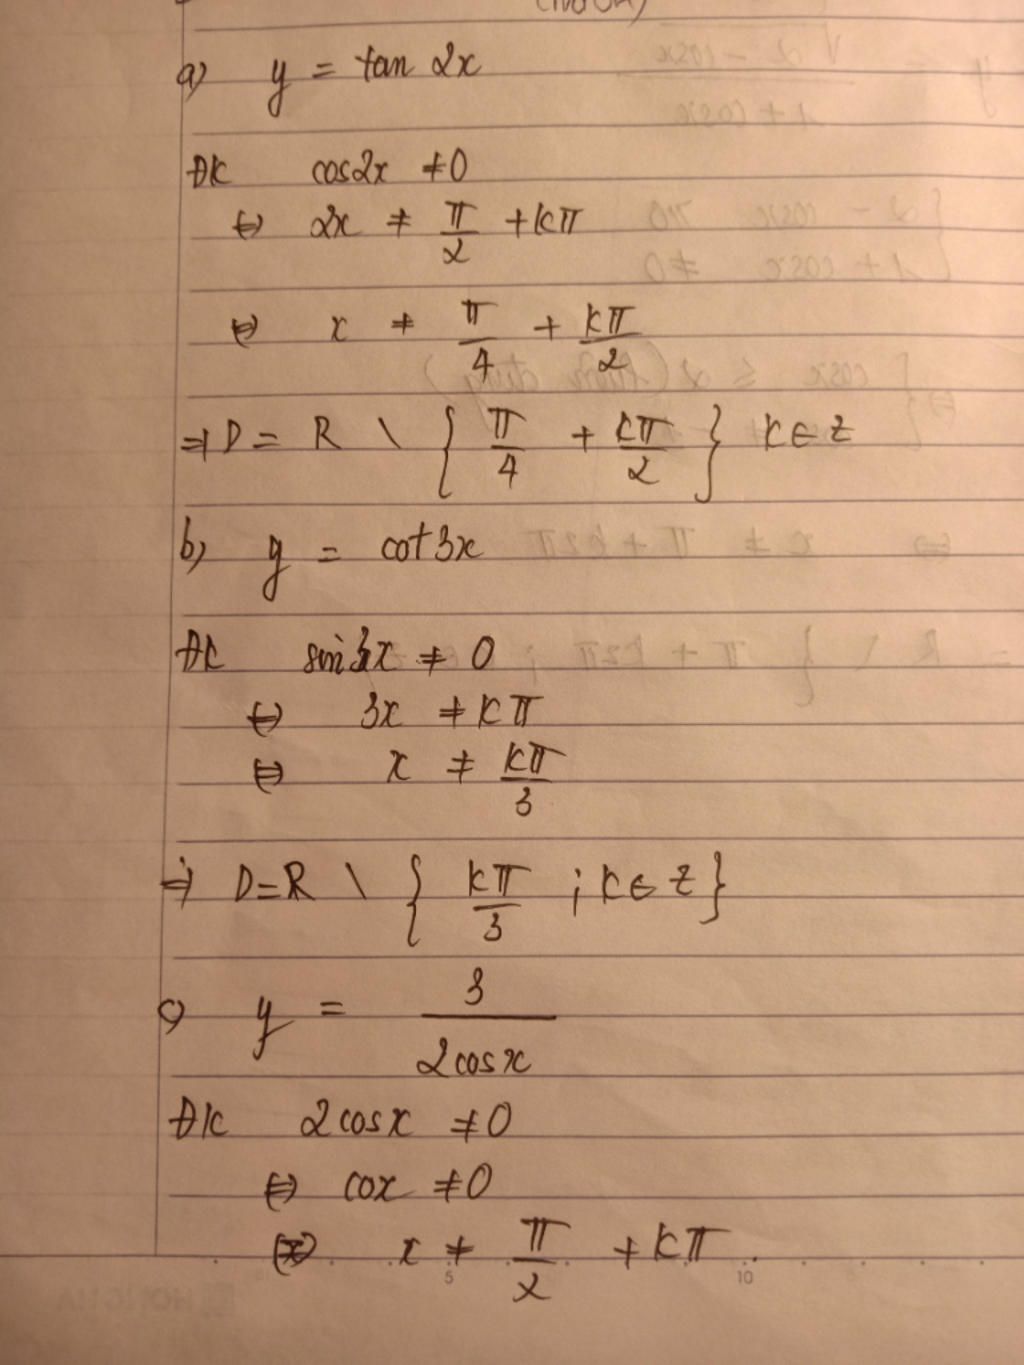 a) y = tan 2x
ĐK cos2x ≠ 0
⇔ 2x ≠ π/2 + kπ
⇔ x ≠ π/4 + kπ/2
⇒ D = R \ { π/4 + kπ/2 } k ∈ Z
b) y = cot 3x
ĐK sin 3x ≠ 0
⇔ 3x ≠ kπ
⇔ x ≠ kπ/3
⇒ D = R \ { kπ/3 ; k ∈ Z }
c) y = 3/(2cosx)
ĐK 2cosx ≠ 0
⇔ cox ≠ 0
⇔ x ≠ π/2 + kπ
5 10